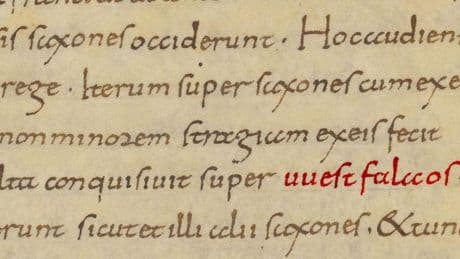 is saxones occiderunt · Hoc audien
rege · Iterum super saxones cum exe
non minorem stragiam ex eis fecit
lta conquisiuit super uuestfalaos ·
erunt sicut et illi alii saxones . & tun